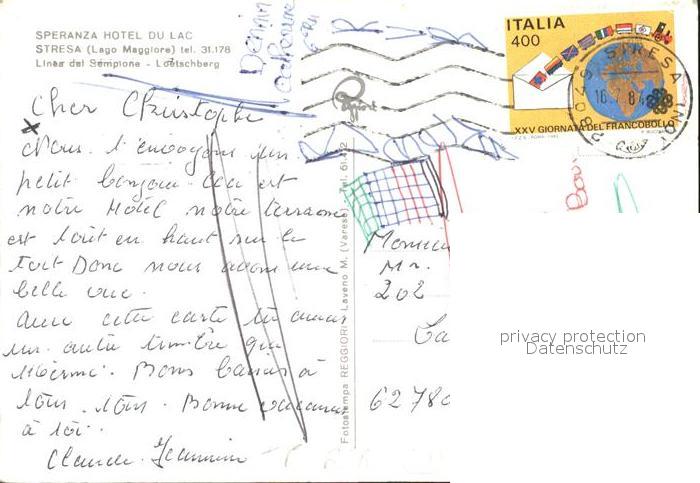 SPERANZA HOTEL DU LAC
STRESA (Lago Maggiore) tel. 31.178
Linea del Sempione - Loetschberg
ITALIA
400
XXV GIORNATA DEL FRANCOBOLLO
28049 STRESA (NO)
16.7.84
Cher Christophe
Nous t'envoyons un
petit bonjour. Ceci est
notre Hôtel notre terrasse
est tout en haut sur le
toit Donc nous avons une
belle vue.
Avec cette carte tu auras
un autre timbre que
Bons baisers à
tous. Bonne vacances
à toi.
Claude
Fotostampa REGGIORI - Laveno M. (Varese) - Tel.
Mr.
202
Ca
6278
privacy protection
Datenschutz